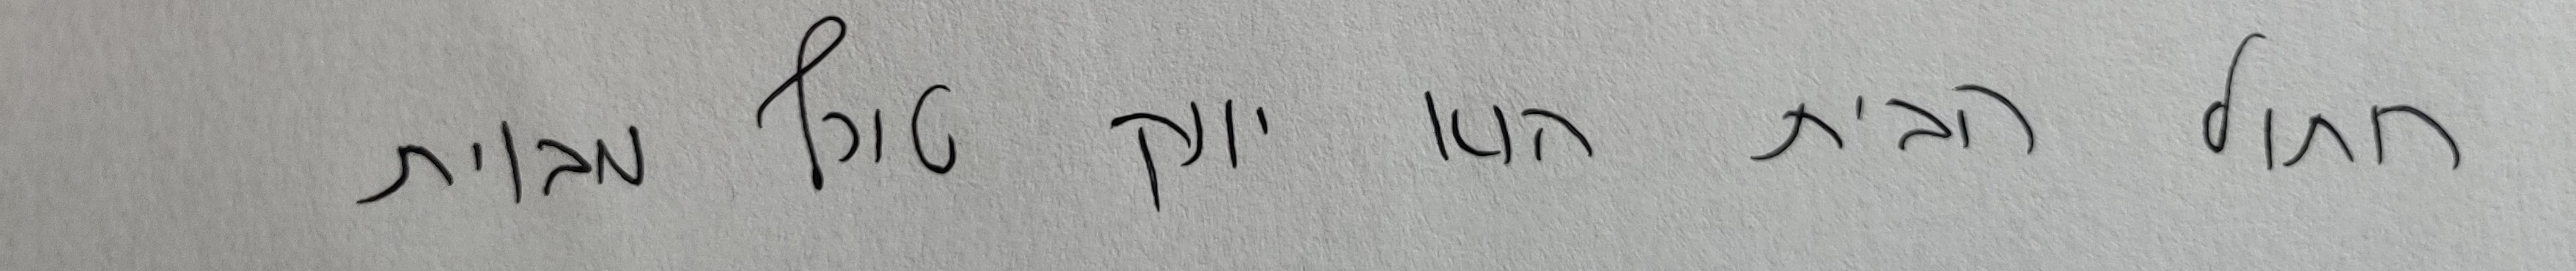 חתול הבית הוא יונק טורף מבוית